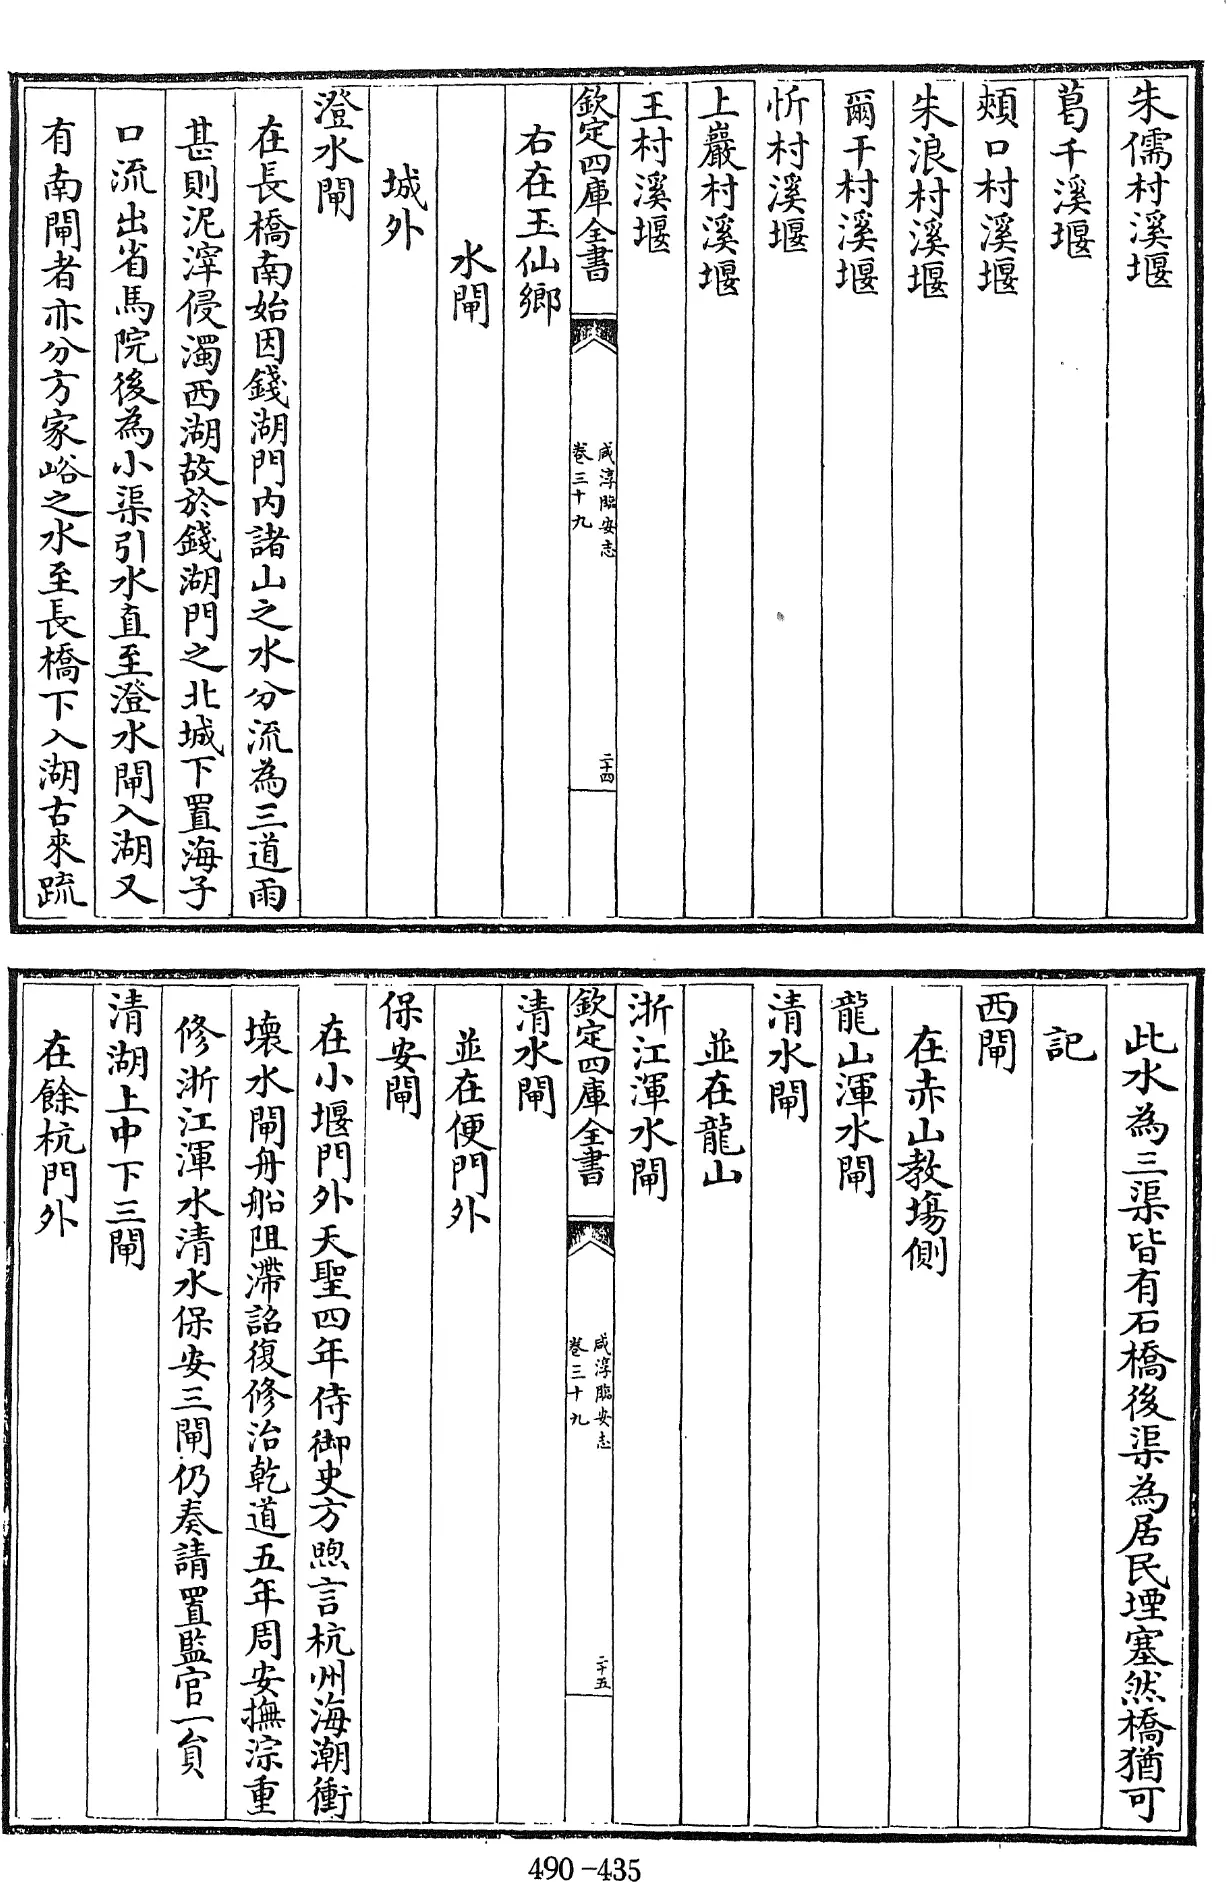 朱儒村溪堰
葛千溪堰
頰口村溪堰
朱浪村溪堰
爾干村溪堰
忻村溪堰
上巖村溪堰
王村溪堰
欽定四庫全書
咸淳臨安志
卷三十九
二十四
右在玉仙鄉
水閘
城外
澄水閘
在長橋南始因錢湖門内諸山之水分流為三道雨
甚則泥滓侵濁西湖故於錢湖門之北城下置海子
口流出省馬院後為小渠引水直至澄水閘入湖又
有南閘者亦分方家峪之水至長橋下入湖古來疏
此水為三渠皆有石橋後渠為居民堙塞然橋猶可
記
西閘
在赤山教塲側
龍山渾水閘
清水閘
並在龍山
浙江渾水閘
欽定四庫全書
咸淳臨安志
卷三十九
二十五
清水閘
並在便門外
保安閘
在小堰門外天聖四年侍御史方䁌言杭州海潮衝
壊水閘舟船阻滯詔復修治乾道五年周安撫淙重
修浙江渾水清水保安三閘仍奏請置監官一員
清湖上中下三閘
在餘杭門外
490-435